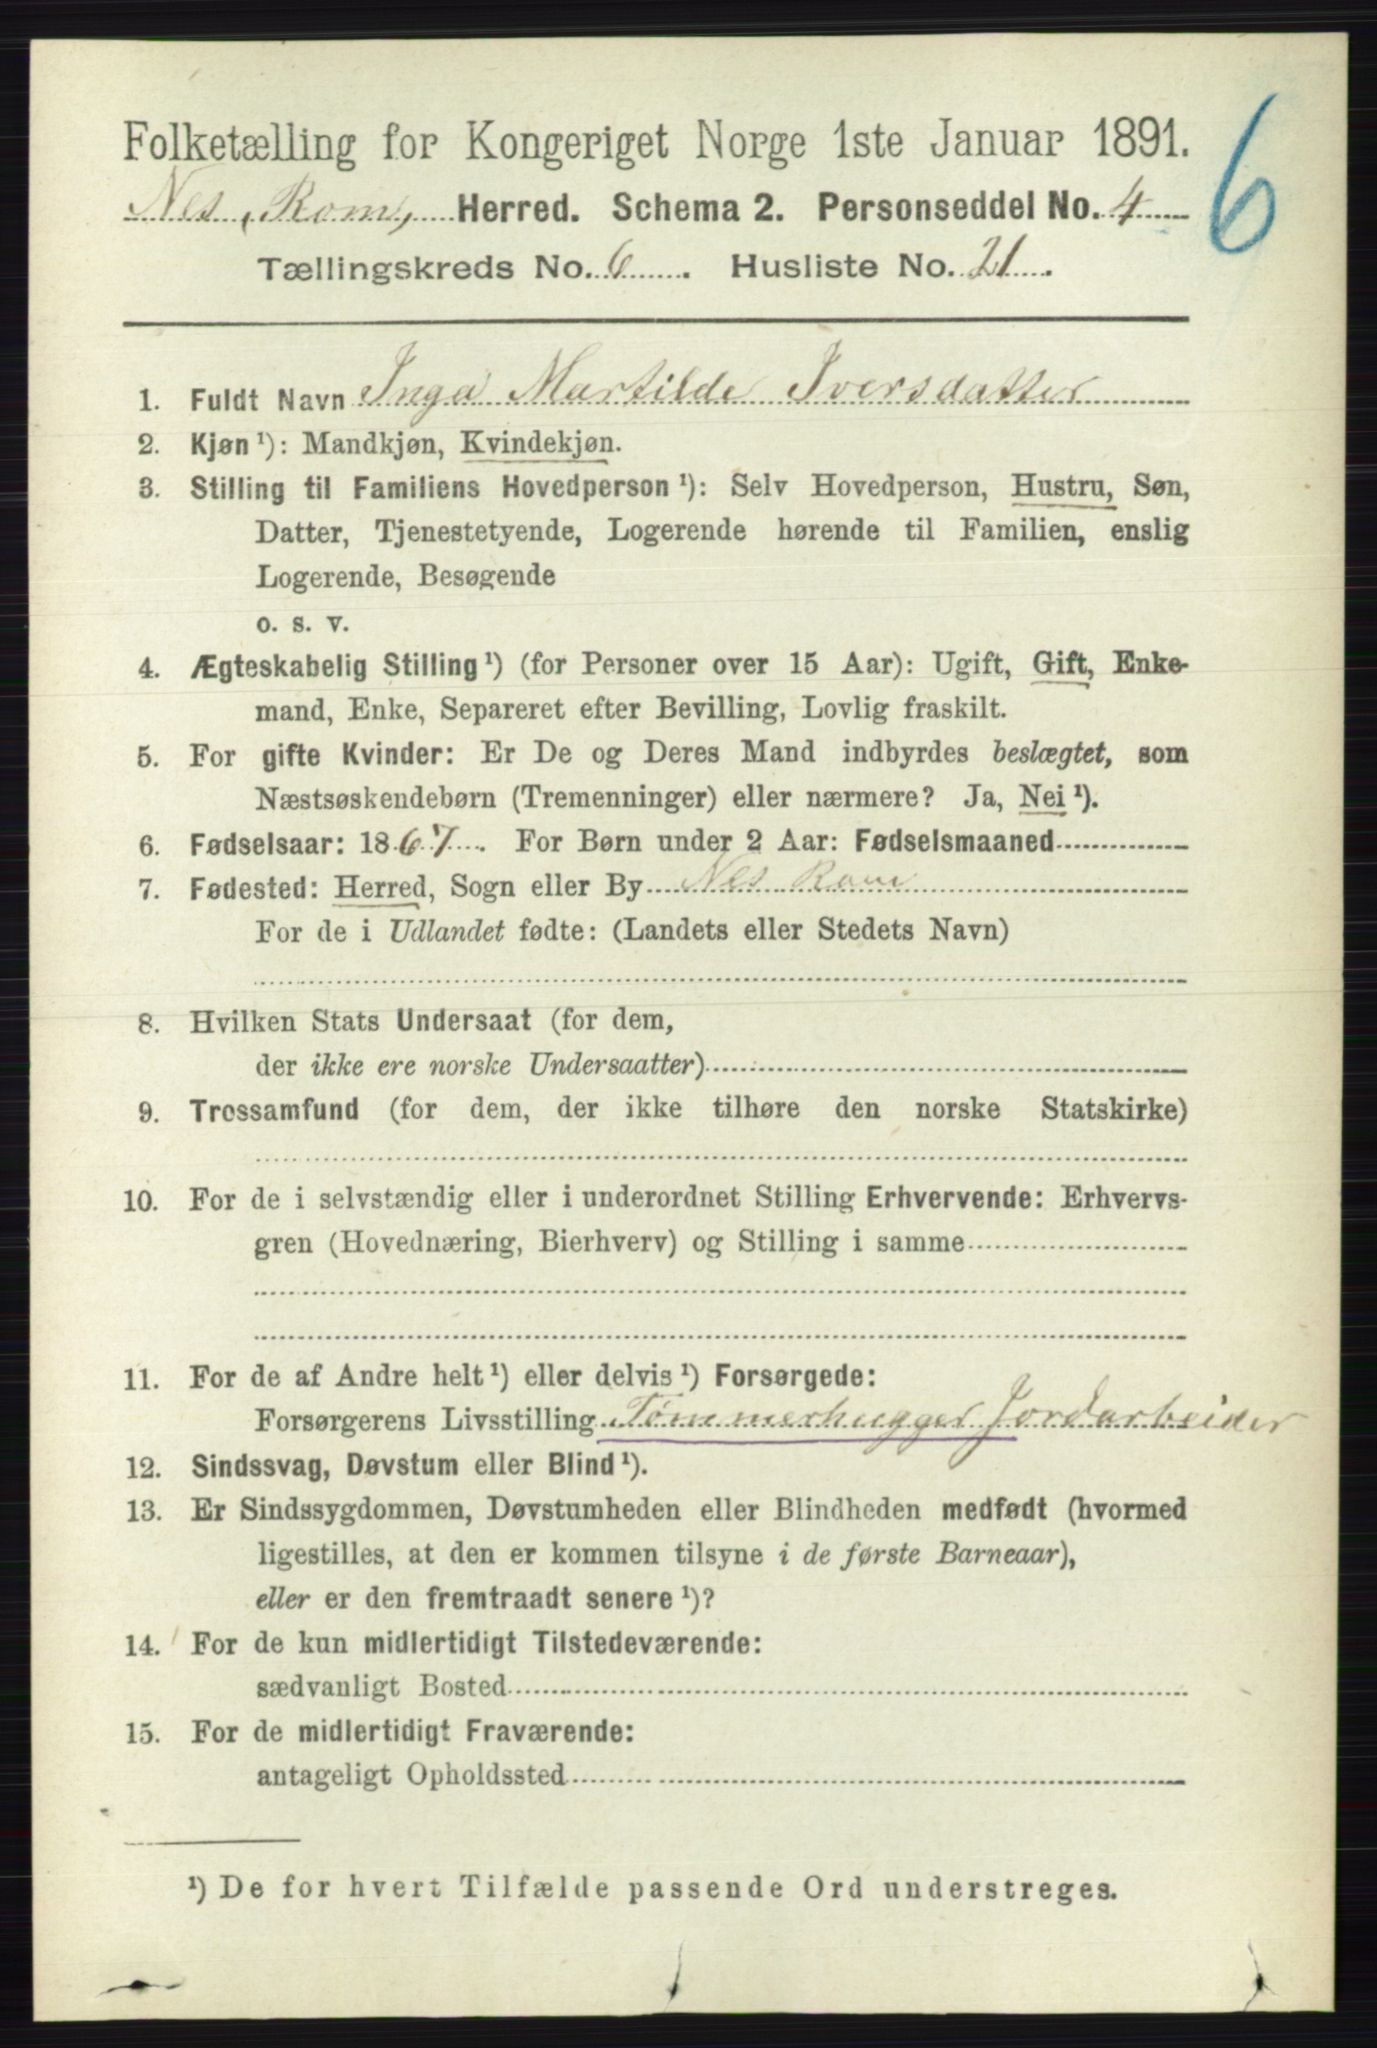 6
Folketælling for Kongeriget Norge 1ste Januar 1891.
Nes, Rom, Herred. Schema 2. Personseddel No. 4
Tællingskreds No. 6. Husliste No. 21.
1. Fuldt Navn Inga Martilde Iversdatter
2. Kjøn ¹): Mandkjøn, Kvindekjøn.
3. Stilling til Familiens Hovedperson ¹): Selv Hovedperson, Hustru, Søn,
Datter, Tjenestetyende, Logerende hørende til Familien, enslig
Logerende, Besøgende
o. s. v.
4. Ægteskabelig Stilling ¹) (for Personer over 15 Aar): Ugift, Gift, Enke-
mand, Enke, Separeret efter Bevilling, Lovlig fraskilt.
5. For gifte Kvinder: Er De og Deres Mand indbyrdes beslægtet, som
Næstsøskendebørn (Tremenninger) eller nærmere? Ja, Nei ¹).
6. Fødselsaar: 1867. For Børn under 2 Aar: Fødselsmaaned
7. Fødested: Herred, Sogn eller By Nes Rom
For de i Udlandet fødte: (Landets eller Stedets Navn)
8. Hvilken Stats Undersaat (for dem,
der ikke ere norske Undersaatter)
9. Trossamfund (for dem, der ikke tilhøre den norske Statskirke)
10. For de i selvstændig eller i underordnet Stilling Erhvervende: Erhvervs-
gren (Hovednæring, Bierhverv) og Stilling i samme
11. For de af Andre helt ¹) eller delvis ¹) Forsørgede:
Forsørgerens Livsstilling Tømmerhugger Jordarbeider
12. Sindssvag, Døvstum eller Blind ¹).
13. Er Sindssygdommen, Døvstumheden eller Blindheden medfødt (hvormed
ligestilles, at den er kommen tilsyne i de første Barneaar),
eller er den fremtraadt senere ¹)?
14. For de kun midlertidigt Tilstedeværende:
sædvanligt Bosted
15. For de midlertidigt Fraværende:
antageligt Opholdssted
¹) De for hvert Tilfælde passende Ord understreges.